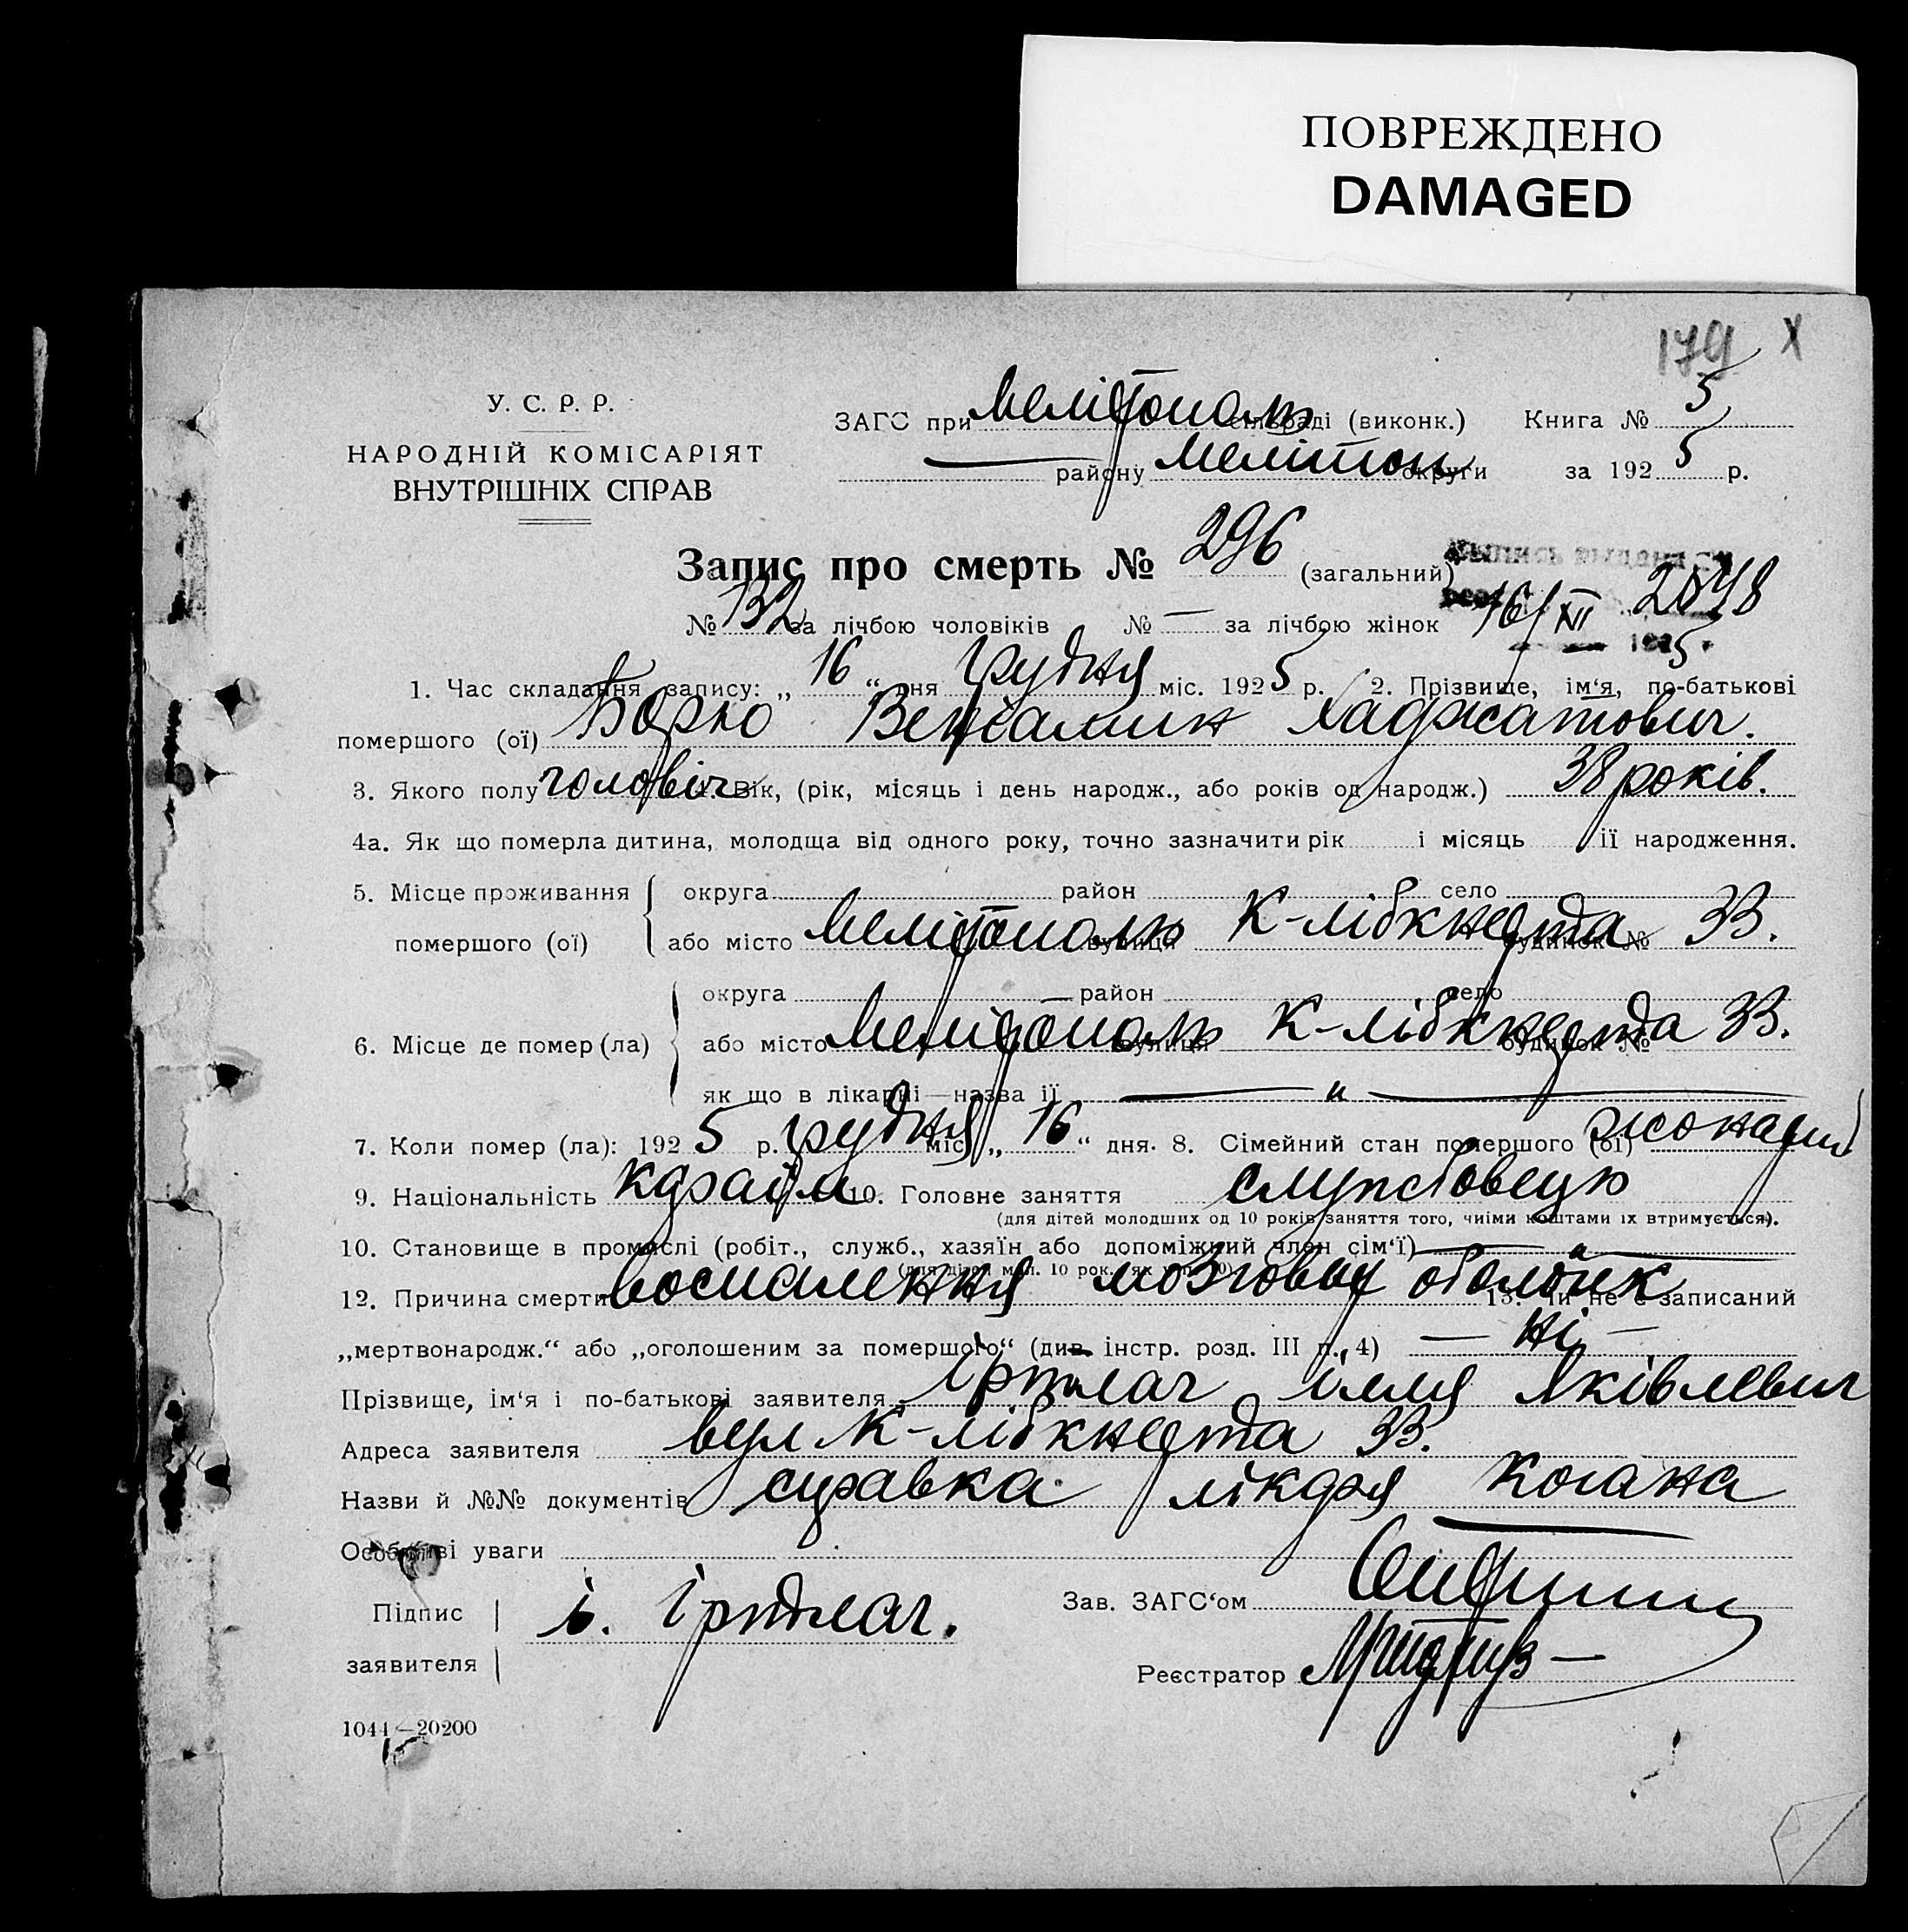 ПОВРЕЖДЕНО
DAMAGED
179 X
У. С. Р. Р.
НАРОДНІЙ КОМІСАРІЯТ
ВНУТРІШНІХ СПРАВ
ЗАГС при Мелітополь сільраді (виконк.) Книга № 5
— району Мелітоп округи за 1925 р.
Запис про смерть № 296 (загальний)
№ 132 за лічбою чоловіків № — за лічбою жінок 16/XII 2898 5
1. Час складання запису: „16“ дня грудня міс. 1925 р. 2. Прізвище, ім'я, по-батькові
помершого (ої) Борко Веніамин Хаджатович.
3. Якого полу чоловіч 4. Вік, (рік, місяць і день народж., або років од народж.) 38 років.
4а. Як що померла дитина, молодща від одного року, точно зазначити рік і місяць її народження.
5. Місце проживання округа район село
помершого (ої) або місто Мелітополь вулиця К-лібкнехта будинок № 33.
округа район село
6. Місце де помер (ла) або місто Мелітополь вулиця К-лібкнехта будинок № 33.
як що в лікарні—назва її — „ —
7. Коли помер (ла): 1925 р. грудня міс. „16“ дня. 8. Сімейний стан помершого (ої) жонатий
9. Національність караїм 10. Головне заняття службовець
(для дітей молодших од 10 років заняття того, чиїми коштами їх втримується).
10. Становище в промислі (робіт., служб., хазяїн або допоміжний член сім'ї) — „ —
12. Причина смерти воспалення мозговых оболоик 13. Чи не є записаний
„мертвонародж.“ або „оголошеним за помершого“ (див. інстр. розд. III п. 4) — Ні —
Прізвище, ім'я і по-батькові заявителя Іртлач ілля Яківлевич
Адреса заявителя вул К-лібкнехта 33.
Назви й №№ документів справка лікаря Когана
Особливі уваги
Підпис
заявителя
і. Іртлач.
Зав. ЗАГС'ом
Реєстратор
1044—20200